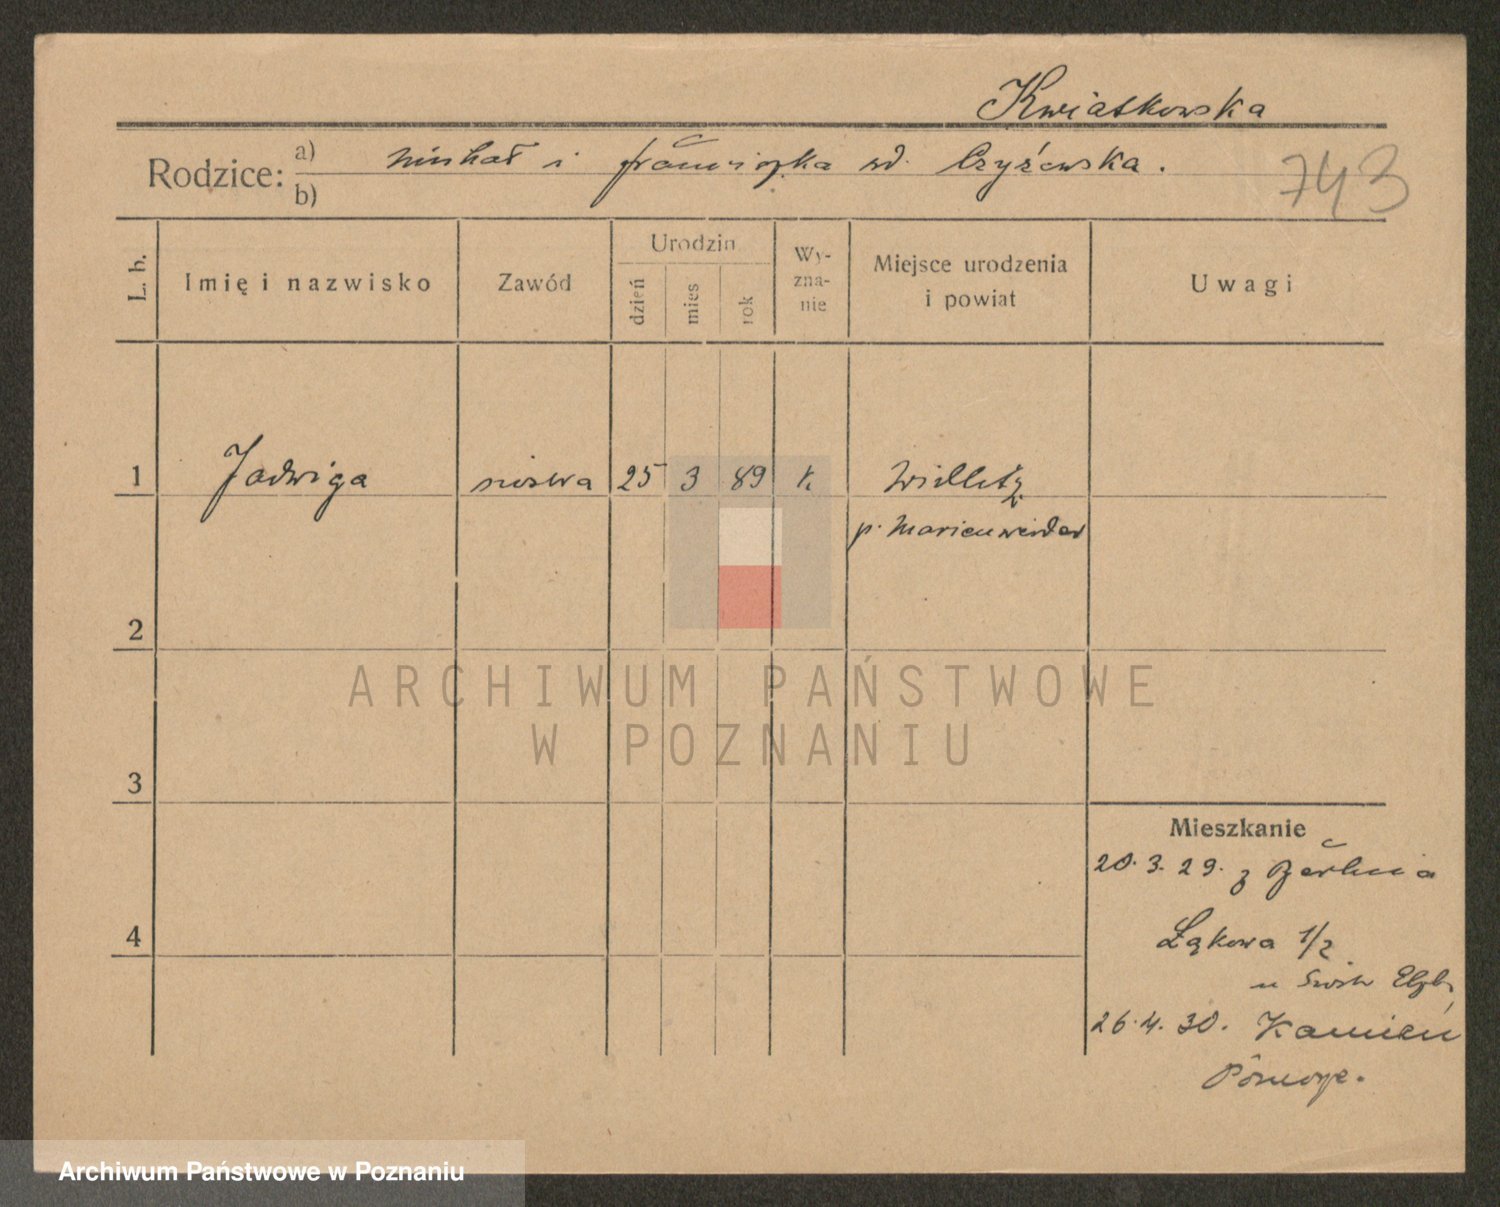 Kwiatkowska
Rodzice: a) Michał i Franciszka wd. Czyżewska.
b)
743
L. b.
Imię i nazwisko
Zawód
Urodzin
dzień
mies
rok
Wy-
zna-
nie
Miejsce urodzenia
i powiat
Uwagi
1 Jadwiga 25 3 89 k.
p. Marienwerder
2
ARCHIWUM PAŃSTWOWE
W POZNANIU
3
Mieszkanie
20.3.29. z Berlina
4
Łąkowa 1/2
u Siostr Elżb.
26.4.30. Kamień
Pomorze.
Archiwum Państwowe w Poznaniu